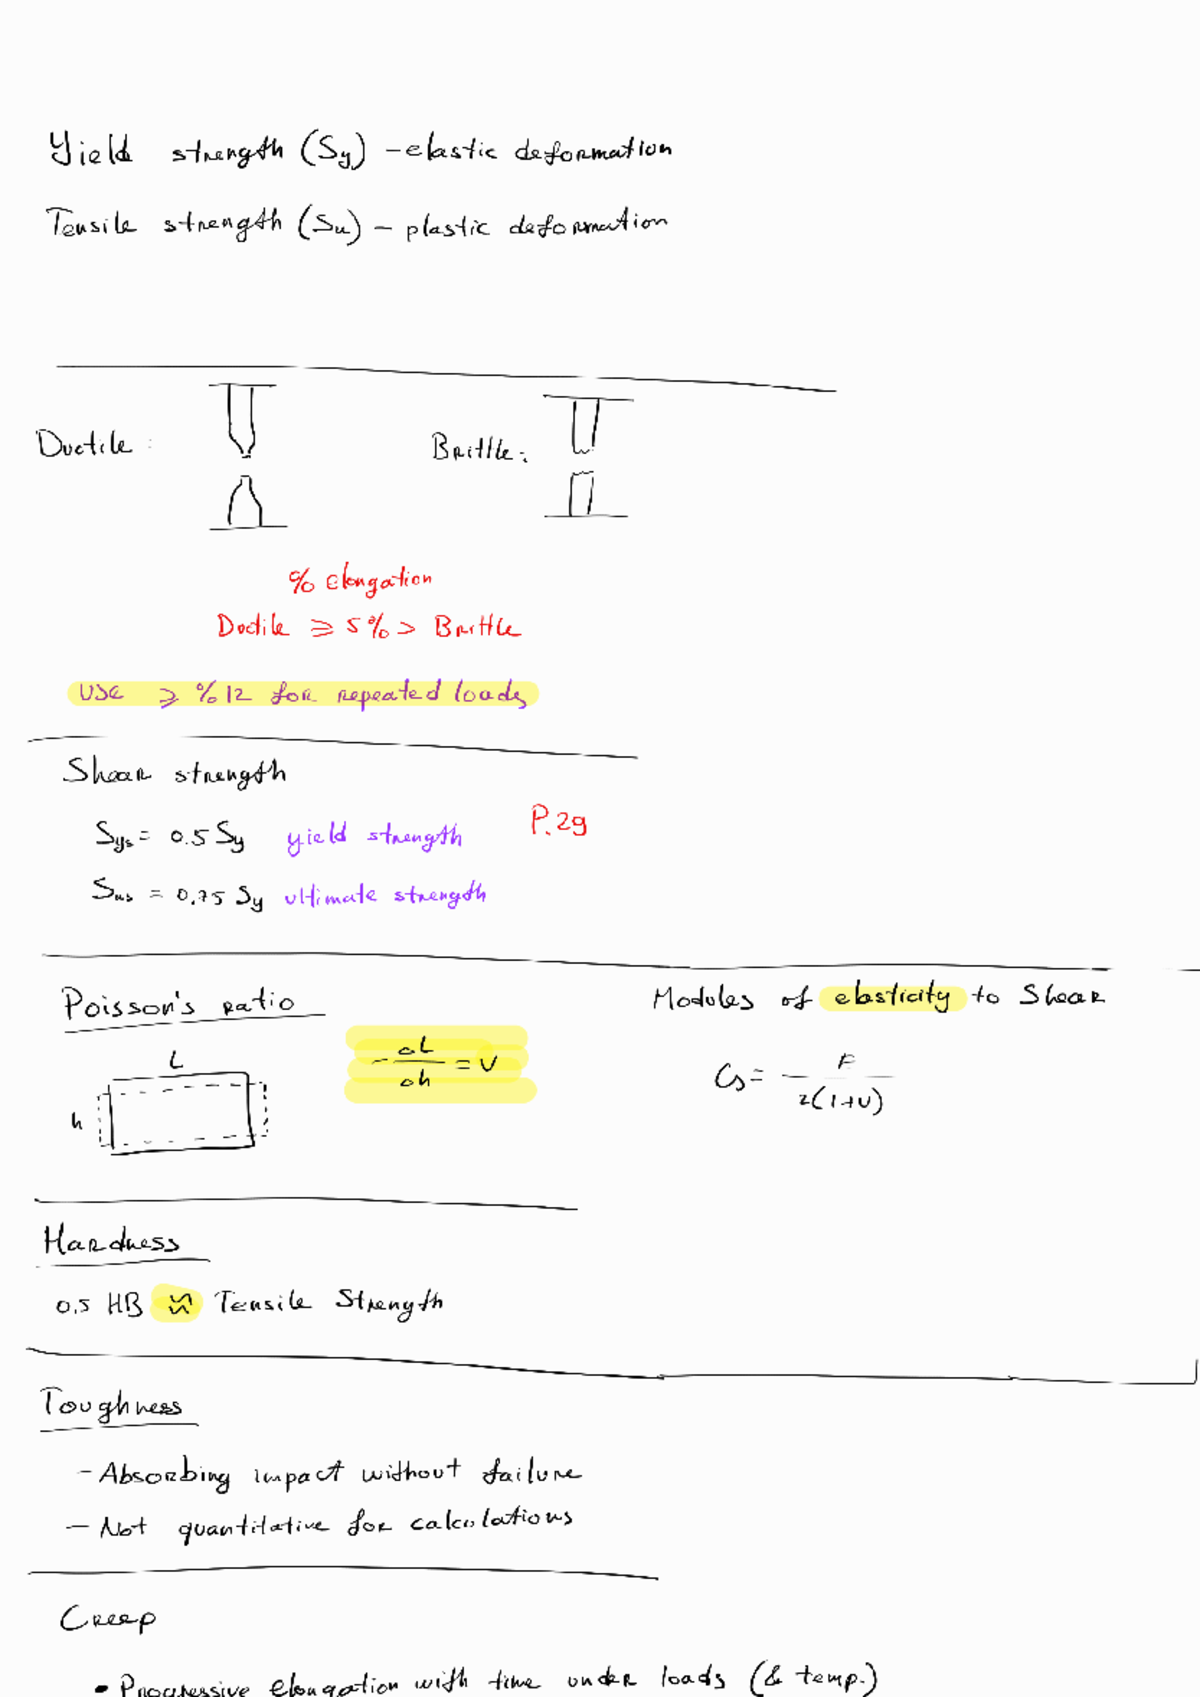 Yield strength (Sy) - elastic deformation
Tensile strength (Su) - plastic deformation
Ductile :
Brittle :
% elongation
Ductile ⩾ 5% > Brittle
use ⩾ %12 for repeated loads
Shear strength
Sys = 0.5 Sy yield strength
P. 29
Sus = 0.75 Sy ultimate strength
Poisson's ratio
Modules of elasticity to Shear
L
h
- ΔL / Δh = ν
G = E / 2(1+ν)
Hardness
0.5 HB ≈ Tensile Strength
Toughness
- Absorbing impact without failure
- Not quantitative for calculations
Creep
• Progressive elongation with time under loads (& temp.)